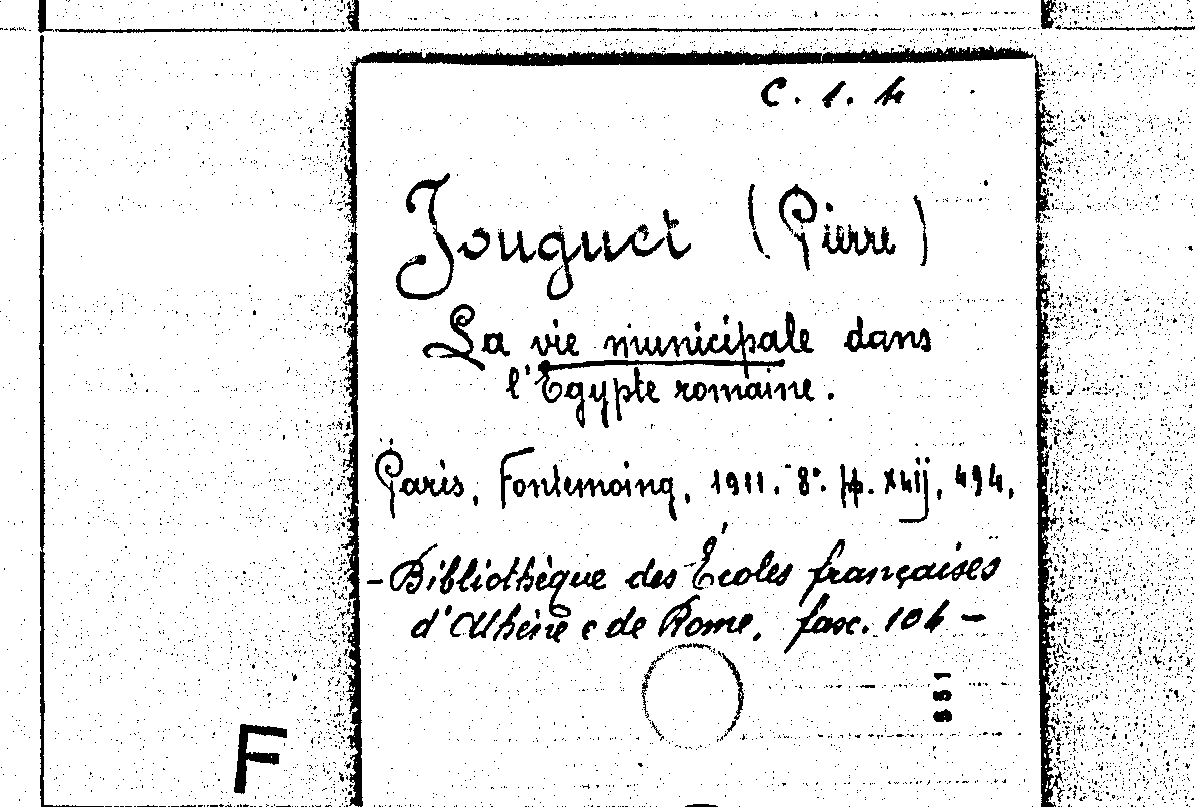 C. 1. 4
Jouguet (Pierre)
La vie municipale dans
l'Egypte romaine.
Paris, Fontemoing, 1911. 8°. pp. xlij, 494,
- Bibliothèque des Écoles françaises
d'Athène e de Rome, fasc. 104 -
551
F